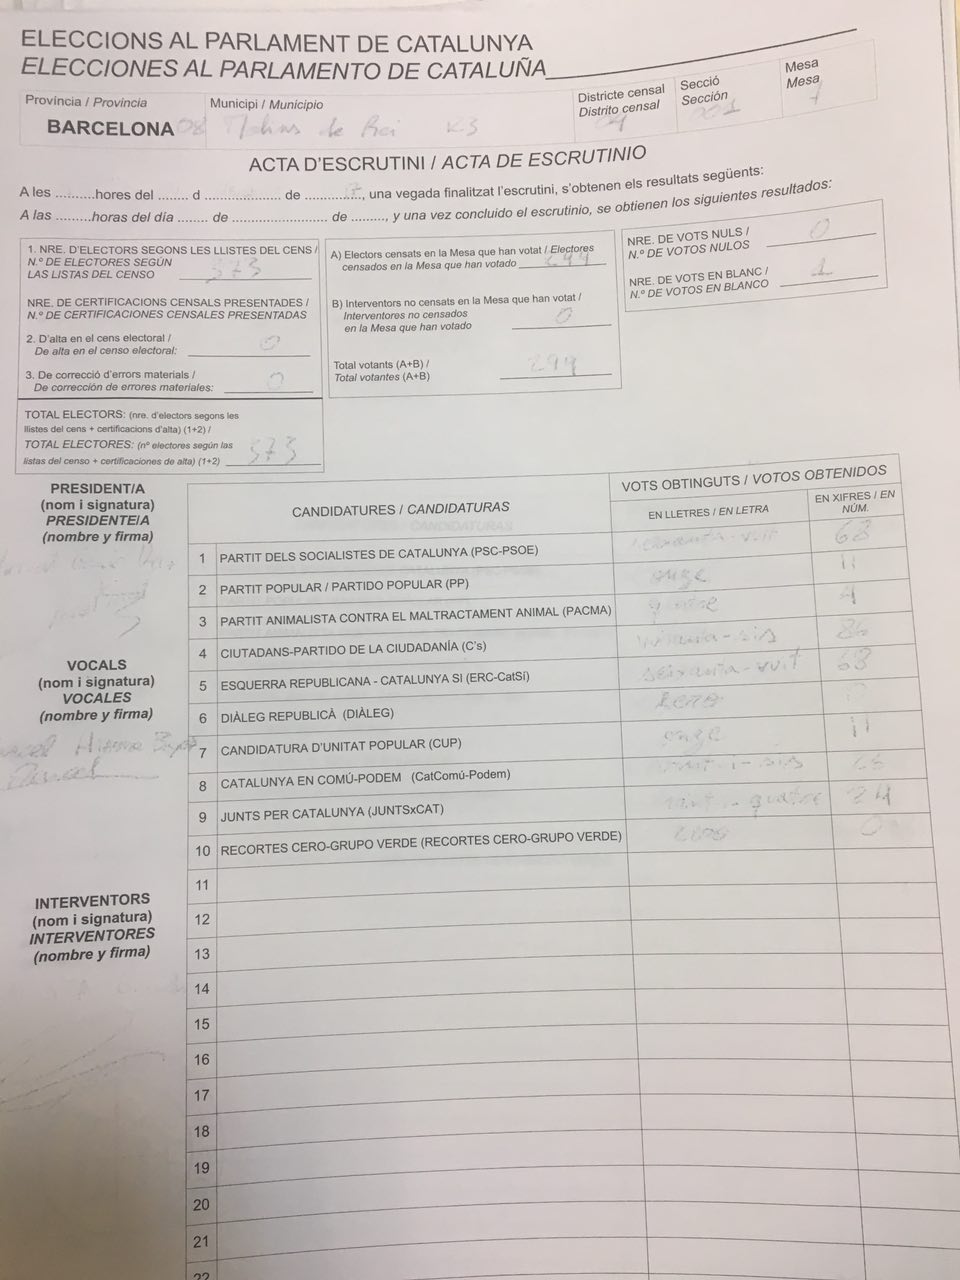 ELECCIONS AL PARLAMENT DE CATALUNYA
ELECCIONES AL PARLAMENTO DE CATALUÑA
Província / Provincia
BARCELONA 08
Municipi / Municipio
Molins de Rei K3
Districte censal
Distrito censal
04
Secció
Sección
001
Mesa
Mesa
ACTA D'ESCRUTINI / ACTA DE ESCRUTINIO
A les ..........hores del ........ d ........................ de ..............., una vegada finalitzat l'escrutini, s'obtenen els resultats següents:
A las .........horas del día ........ de ......................... de ........., y una vez concluido el escrutinio, se obtienen los siguientes resultados:
1. NRE. D'ELECTORS SEGONS LES LLISTES DEL CENS /
N.º DE ELECTORES SEGÚN
LAS LISTAS DEL CENSO 373
NRE. DE CERTIFICACIONS CENSALS PRESENTADES /
N.º DE CERTIFICACIONES CENSALES PRESENTADAS
2. D'alta en el cens electoral /
De alta en el censo electoral: 0
3. De correcció d'errors materials /
De corrección de errores materiales: 0
TOTAL ELECTORS: (nre. d'electors segons les
llistes del cens + certificacions d'alta) (1+2) /
TOTAL ELECTORES: (nº electores según las
listas del censo + certificaciones de alta) (1+2) 373
A) Electors censats en la Mesa que han votat / Electores
censados en la Mesa que han votado 299
B) Interventors no censats en la Mesa que han votat /
Interventores no censados
en la Mesa que han votado 0
Total votants (A+B) /
Total votantes (A+B) 299
NRE. DE VOTS NULS /
N.º DE VOTOS NULOS 0
NRE. DE VOTS EN BLANC /
N.º DE VOTOS EN BLANCO 1
PRESIDENT/A
(nom i signatura)
PRESIDENTE/A
(nombre y firma)
VOCALS
(nom i signatura)
VOCALES
(nombre y firma)
INTERVENTORS
(nom i signatura)
INTERVENTORES
(nombre y firma)
CANDIDATURES / CANDIDATURAS
VOTS OBTINGUTS / VOTOS OBTENIDOS
EN LLETRES / EN LETRA
EN XIFRES / EN
NÚM.
1 PARTIT DELS SOCIALISTES DE CATALUNYA (PSC-PSOE) seixanta-vuit 68
2 PARTIT POPULAR / PARTIDO POPULAR (PP) onze 11
3 PARTIT ANIMALISTA CONTRA EL MALTRACTAMENT ANIMAL (PACMA) quatre 4
4 CIUTADANS-PARTIDO DE LA CIUDADANÍA (C's) vuitanta-sis 86
5 ESQUERRA REPUBLICANA - CATALUNYA SI (ERC-CatSí) seixanta-vuit 68
6 DIÀLEG REPUBLICÀ (DIÀLEG) zero 0
7 CANDIDATURA D'UNITAT POPULAR (CUP) onze 11
8 CATALUNYA EN COMÚ-PODEM (CatComú-Podem) vint-i-sis 26
9 JUNTS PER CATALUNYA (JUNTSxCAT) vint-i-quatre 24
10 RECORTES CERO-GRUPO VERDE (RECORTES CERO-GRUPO VERDE) zero 0
11
12
13
14
15
16
17
18
19
20
21
22